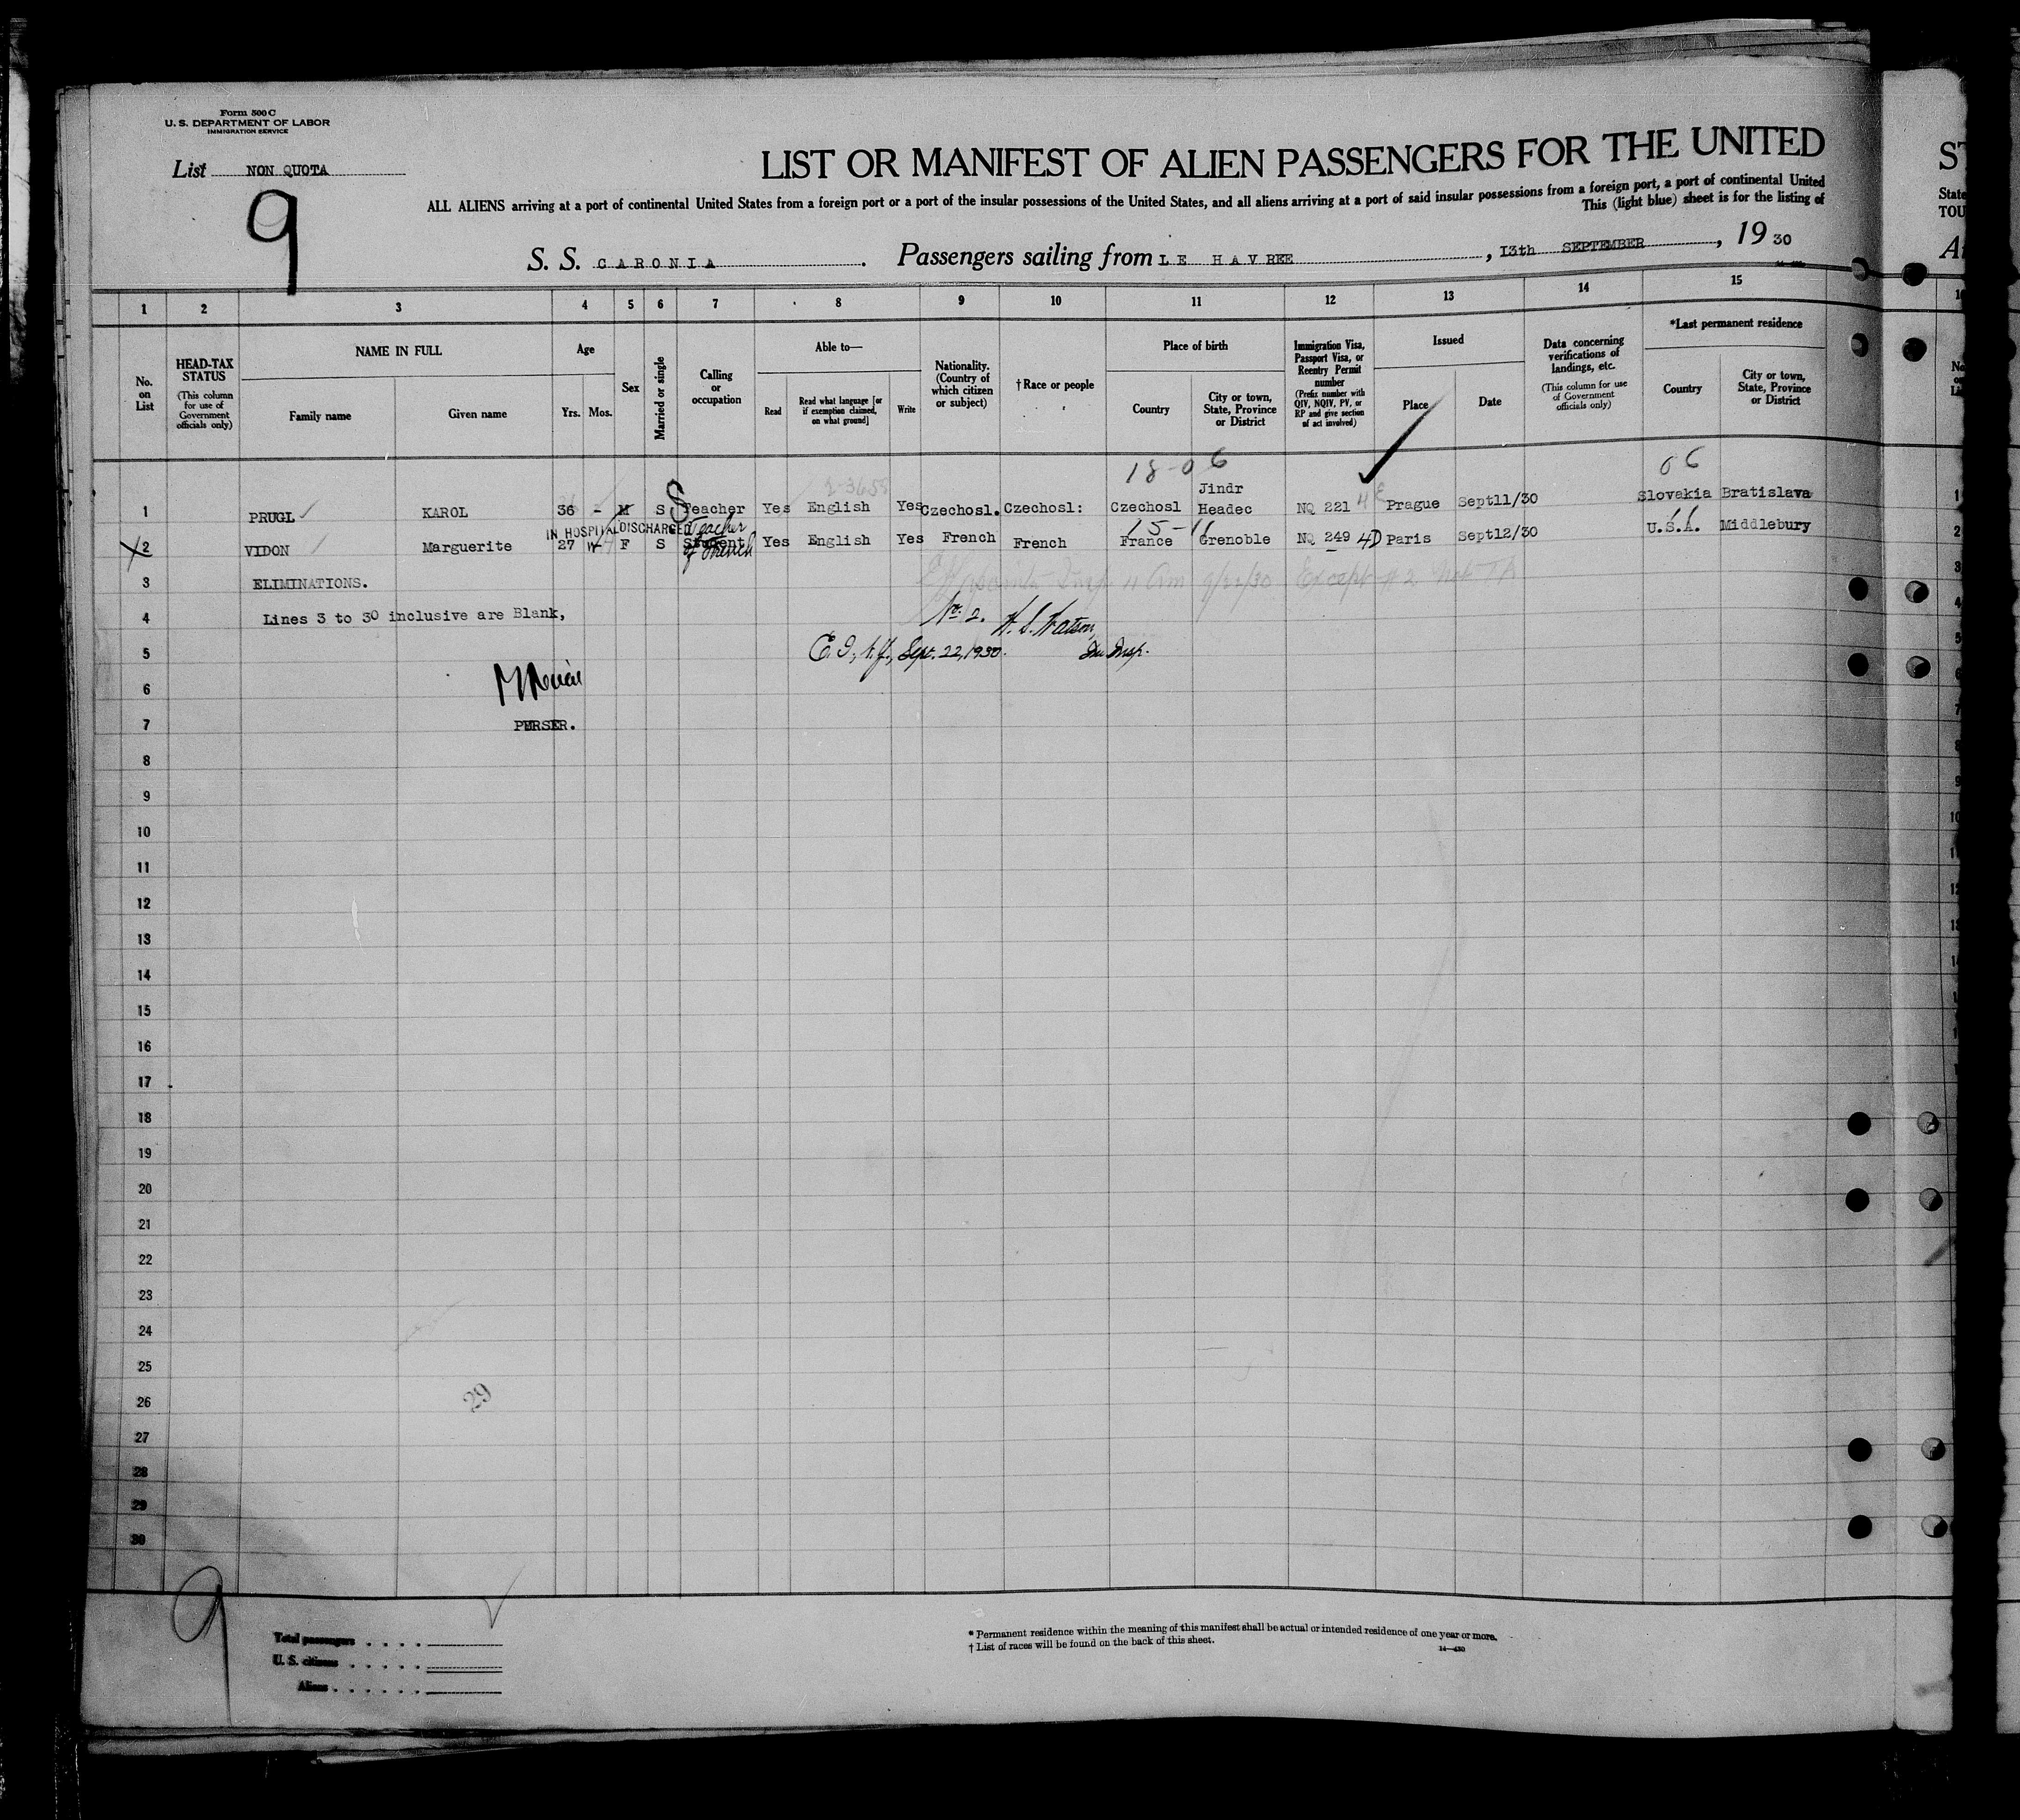 Form 500 C
U. S. DEPARTMENT OF LABOR
IMMIGRATION SERVICE
List NON QUOTA
9
LIST OR MANIFEST OF ALIEN PASSENGERS FOR THE UNITED
ALL ALIENS arriving at a port of continental United States from a foreign port or a port of the insular possessions of the United States, and all aliens arriving at a port of said insular possessions from a foreign port, a port of continental United
This (light blue) sheet is for the listing of
S. S. CARONIA. Passengers sailing from LE HAVREE, 13th SEPTEMBER, 19 30
ST
State
TOU
1 2 3 4 5 6 7 8 9 10 11 12 13 14 15
No. on List
HEAD-TAX STATUS (This column for use of Government officials only)
NAME IN FULL
Family name
Given name
Age
Yrs. Mos.
Sex
Married or single
Calling or occupation
Able to—
Read
Read what language [or if exemption claimed, on what ground]
Write
Nationality. (Country of which citizen or subject)
† Race or people
Place of birth
Country
City or town, State, Province or District
Immigration Visa, Passport Visa, or Reentry Permit number (Prefix number with QIV, NQIV, PV, or RP and give section of act involved)
Issued
Place
Date
Data concerning verifications of landings, etc. (This column for use of Government officials only)
*Last permanent residence
Country
City or town, State, Province or District
18-06 06
2-3655
1 PRUGL KAROL 36 - M S S Teacher Yes English Yes Czechosl. Czechosl: Czechosl Jindr Headec NQ 221 4E Prague Sept11/30 Slovakia Bratislava
IN HOSPITAL DISCHARGED Teacher of French
15-11 11
2 VIDON Marguerite 27 - F S Student Yes English Yes French French France Grenoble NQ 249 4D Paris Sept12/30 U.S.A. Middlebury
3 ELIMINATIONS.
11 Am 9/22/30 Except # 2
4 Lines 3 to 30 inclusive are Blank,
No. 2. H. S. Watson,
5 E. I., N.J., Sept. 22, 1930. Imm Insp.
6
7 PURSER.
8
9
10
11
12
13
14
15
16
17
18
19
20
21
22
23
24
25
26
29
27
28
29
30
9
Total passengers
U. S. citizens
Aliens
* Permanent residence within the meaning of this manifest shall be actual or intended residence of one year or more.
† List of races will be found on the back of this sheet.
14—430